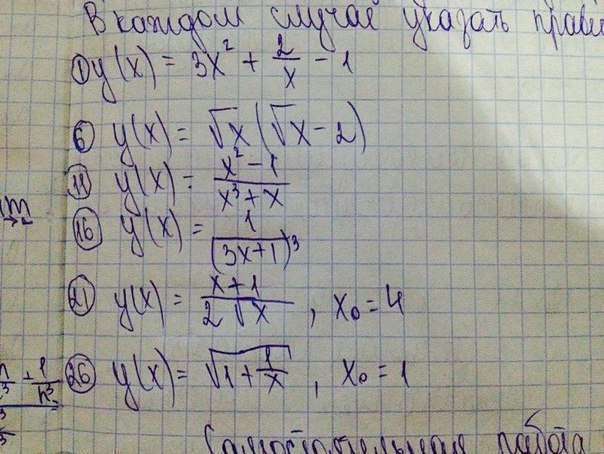 В каждом случае указать прави
① y(x) = 3x² + 2/x - 1
⑥ y(x) = √x (√x - 2)
⑪ y(x) = (x² - 1)/(x³ + x)
⑯ y(x) = 1/(3x+1)³
㉑ y(x) = (x+1)/(2√x), x₀ = 4
㉖ y(x) = √(1 + 1/x), x₀ = 1
Самостоятельная работа